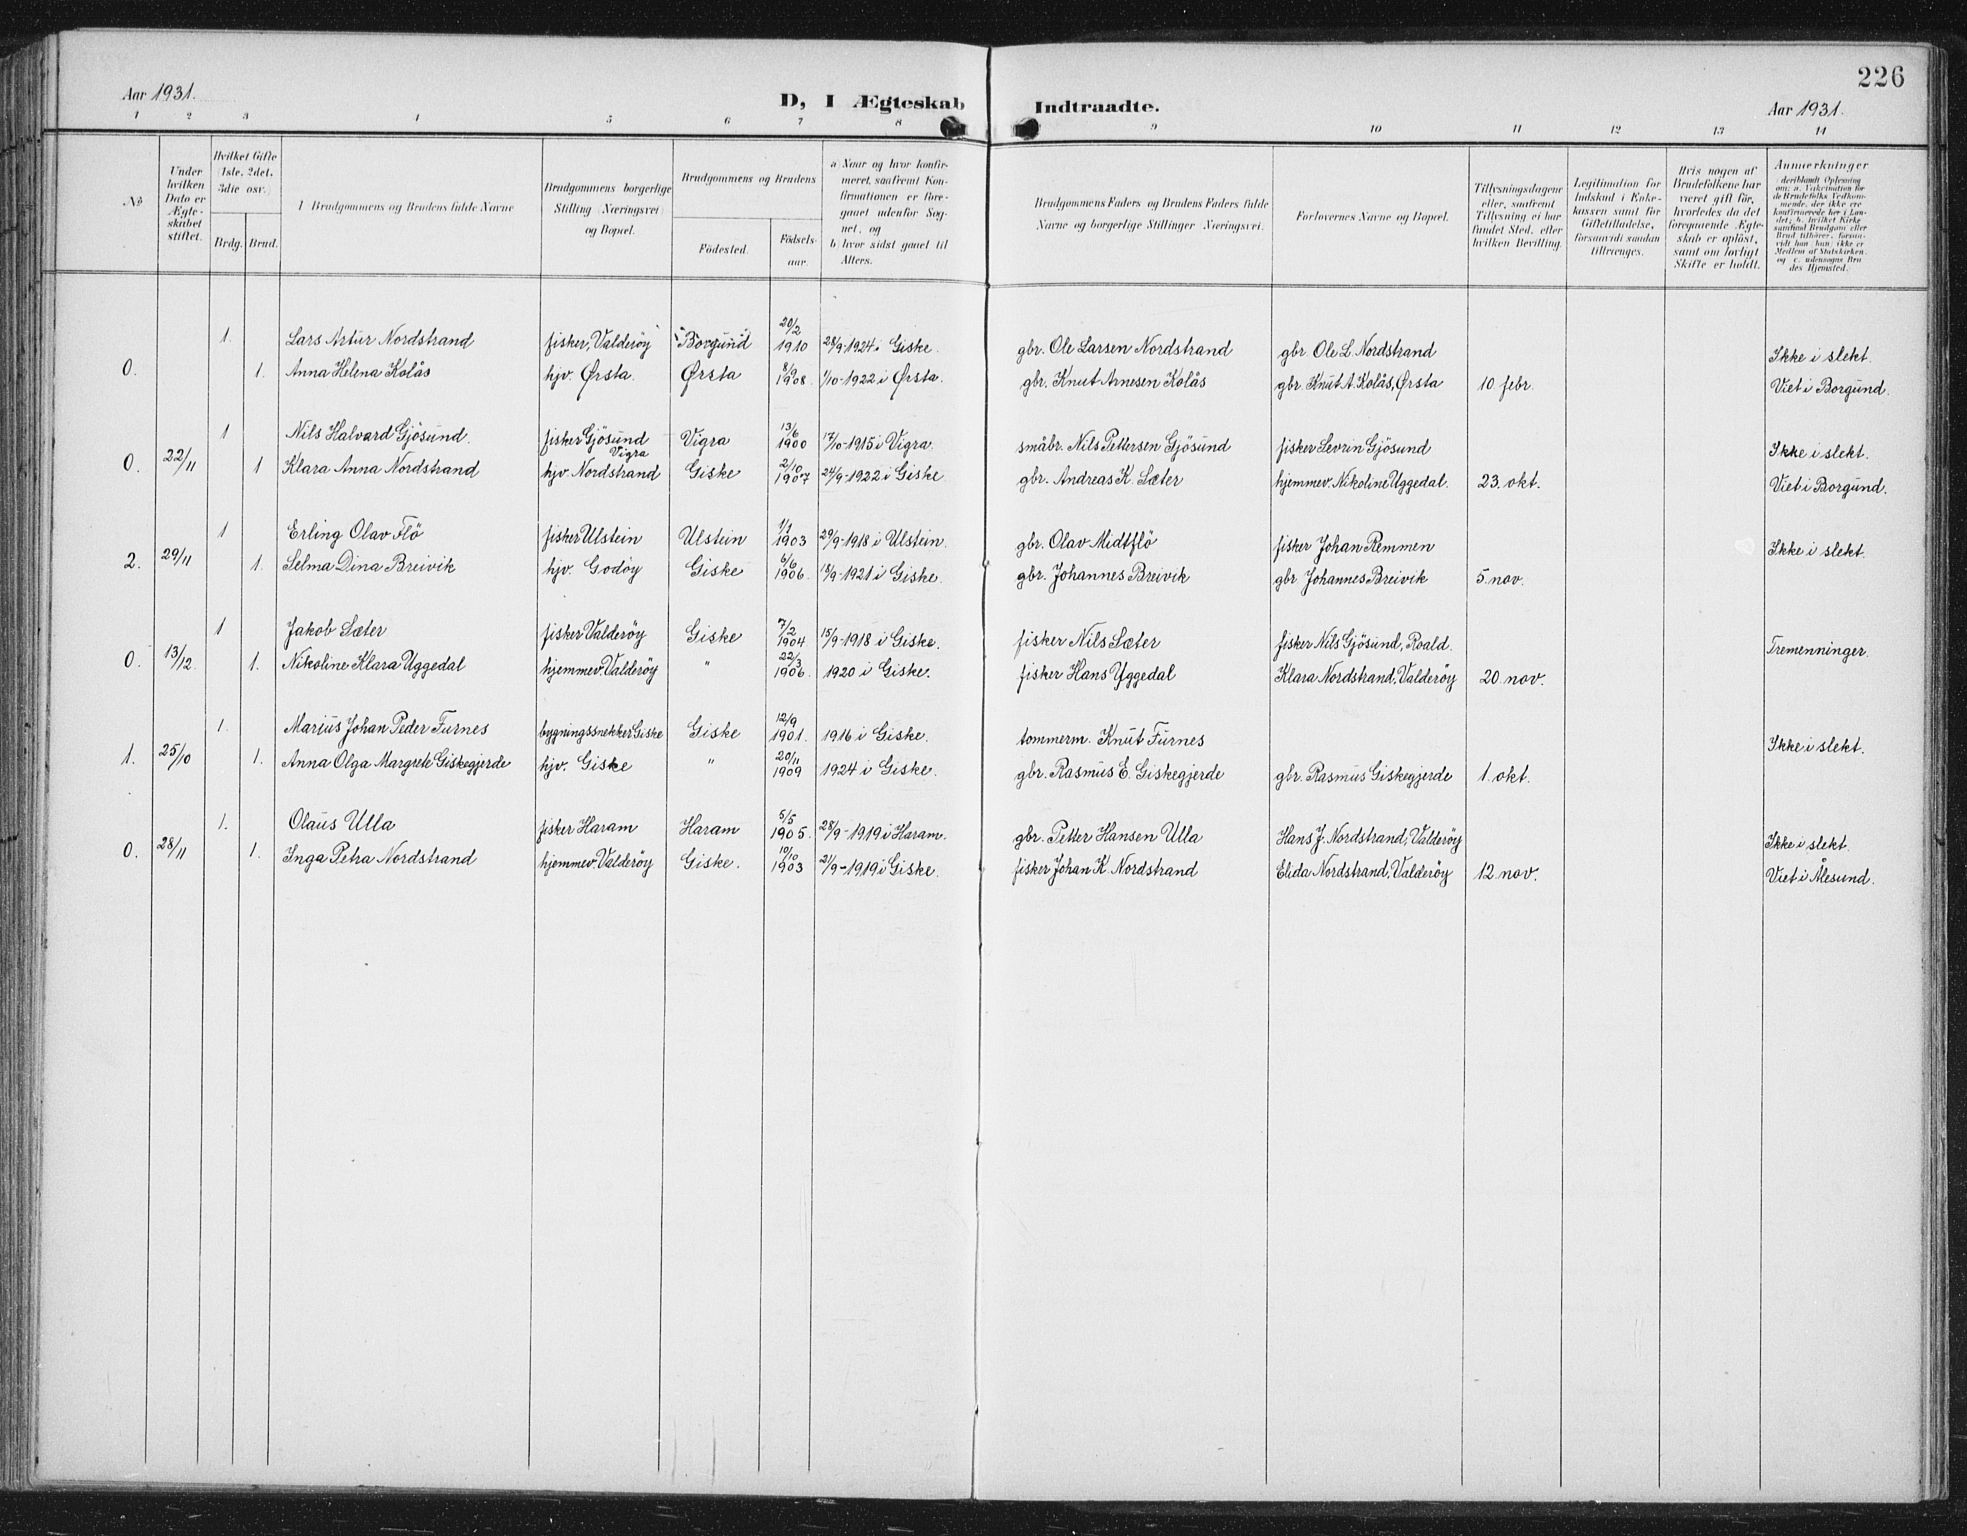 226
Aar 1931.
D, I Ægteskab Indtraadte.
Aar 1931.
1 2 3 4 5 6 7 8 9 10 11 12 13 14
No
Under hvilken Dato er Ægte-skabet stiftet.
Hvilket Gifte (1ste, 2det, 3die osv.)
Brdg. Brud.
1 Brudgommens og Brudens fulde Navne
Brudgommens borgerlige Stilling (Næringsvei) og Bopæl.
Brudgommens og Brudens
Födested.
Födsels-aar.
a Naar og hvor konfir-meret, saafremt Kon-firmationen er fore-gaaet udenfor Sog-net, og
b hvor sidst gaaet til Alters.
Brudgommens Faders og Brudens Faders fulde Navne og borgerlige Stillinger Næringsvei.
Forlovernes Navne og Bopæl.
Tillysningsdagene eller, saafremt Tillysning ei har fundet Sted, efter hvilken Bevilling.
Legitimation for Indskud i Enke-kassen samt for Giftetilladelse, forsaavidt saadan tiltrænges.
Hvis nogen af Brudefolkene har været gift för, hvorledes da det foregaaende Ægte-skab er oplöst, samt om lovligt Skifte er holdt.
Anmerkninger
deriblandt Oplysning om: a. Vakcination for de Brudefolks Vedkom-mende, der ikke ere konfirmerede her i Lan-det; b. hvilket Kirke-samfund Brudgom eller Brud tilhörer, forsaa-vidt han, hun, ikke er Medlem af Statskirken, og c. udensogns Bru-des Hjemsted.
1. Lars Artur Nordstrand fisker, Valderöy Borgund 20/2 1910 28/9-1924 i Giske. gbr. Ole Larsen Nordstrand gbr. Ole L. Nordstrand Ikke i slekt.
0. 1. Anna Helena Kolås hjv. Ørsta. Ørsta 8/9 1908. 1/10-1922 i Ørsta. gbr. Knut Arnesen Kolås gbr. Knut A. Kolås, Ørsta 10 febr. Viet i Borgund.
1 Nils Halvard Gjösund. fisker Gjösund Vigra Vigra 13/6 1900 17/10-1915 i Vigra. småbr. Nils Pettersen Gjösund fisker Levrin Gjösund Ikke i slekt.
0. 22/11 1 Klara Anna Nordstrand hjv. Nordstrand Giske 2/10 1907 24/9-1922 i Giske gbr. Andreas K. Sæter hjemmev. Nikoline Uggedal. 23. okt. Viet i Borgund.
1 Erling Olav Flö fisker Ulstein Ulstein 1/1 1903 29/9-1918 i Ulstein. gbr. Olav Midtflö fisker Johan Remmen Ikke i slekt.
2. 29/11 1. Selma Dina Breivik hjv. Godöy Giske 6/6 1906. 18/9-1921 i Giske. gbr. Johannes Breivik gbr. Johannes Breivik 5. nov.
1 Jakob Sæter fisker Valderöy Giske 7/2 1904 15/9-1918 i Giske. fisker Nils Sæter fisker Nils Gjösund, Roald. Tremenninger.
0. 13/12. 1. Nikoline Klara Uggedal hjemmev. Valderöy " 22/3 1906. 1920 i Giske. fisker Hans Uggedal Klara Nordstrand, Valderöy 20. nov.
1. Marius Johan Peder Furnes bygningssnekker Giske Giske 12/9 1901. 1916 i Giske. tommerm. Knut Furnes Ikke i slekt.
1. 25/10 1. Anna Olga Margrete Giskegjerde hjv. Giske " 20/11 1909 1924 i Giske. gbr. Rasmus E. Giskegjerde gbr. Rasmus Giskegjerde 1. okt.
1. Olaus Ulla fisker Haram Haram 5/5 1905. 28/9-1919 i Haram. gbr. Petter Hansen Ulla Hans J. Nordstrand, Valderöy Ikke i slekt.
0. 28/11 1. Inga Petra Nordstrand hjemmev. Valderöy Giske. 10/10 1903 21/9-1919 i Giske. fisker Johan K. Nordstrand Elida Nordstrand, Valderöy 12 nov. Viet i Ålesund.